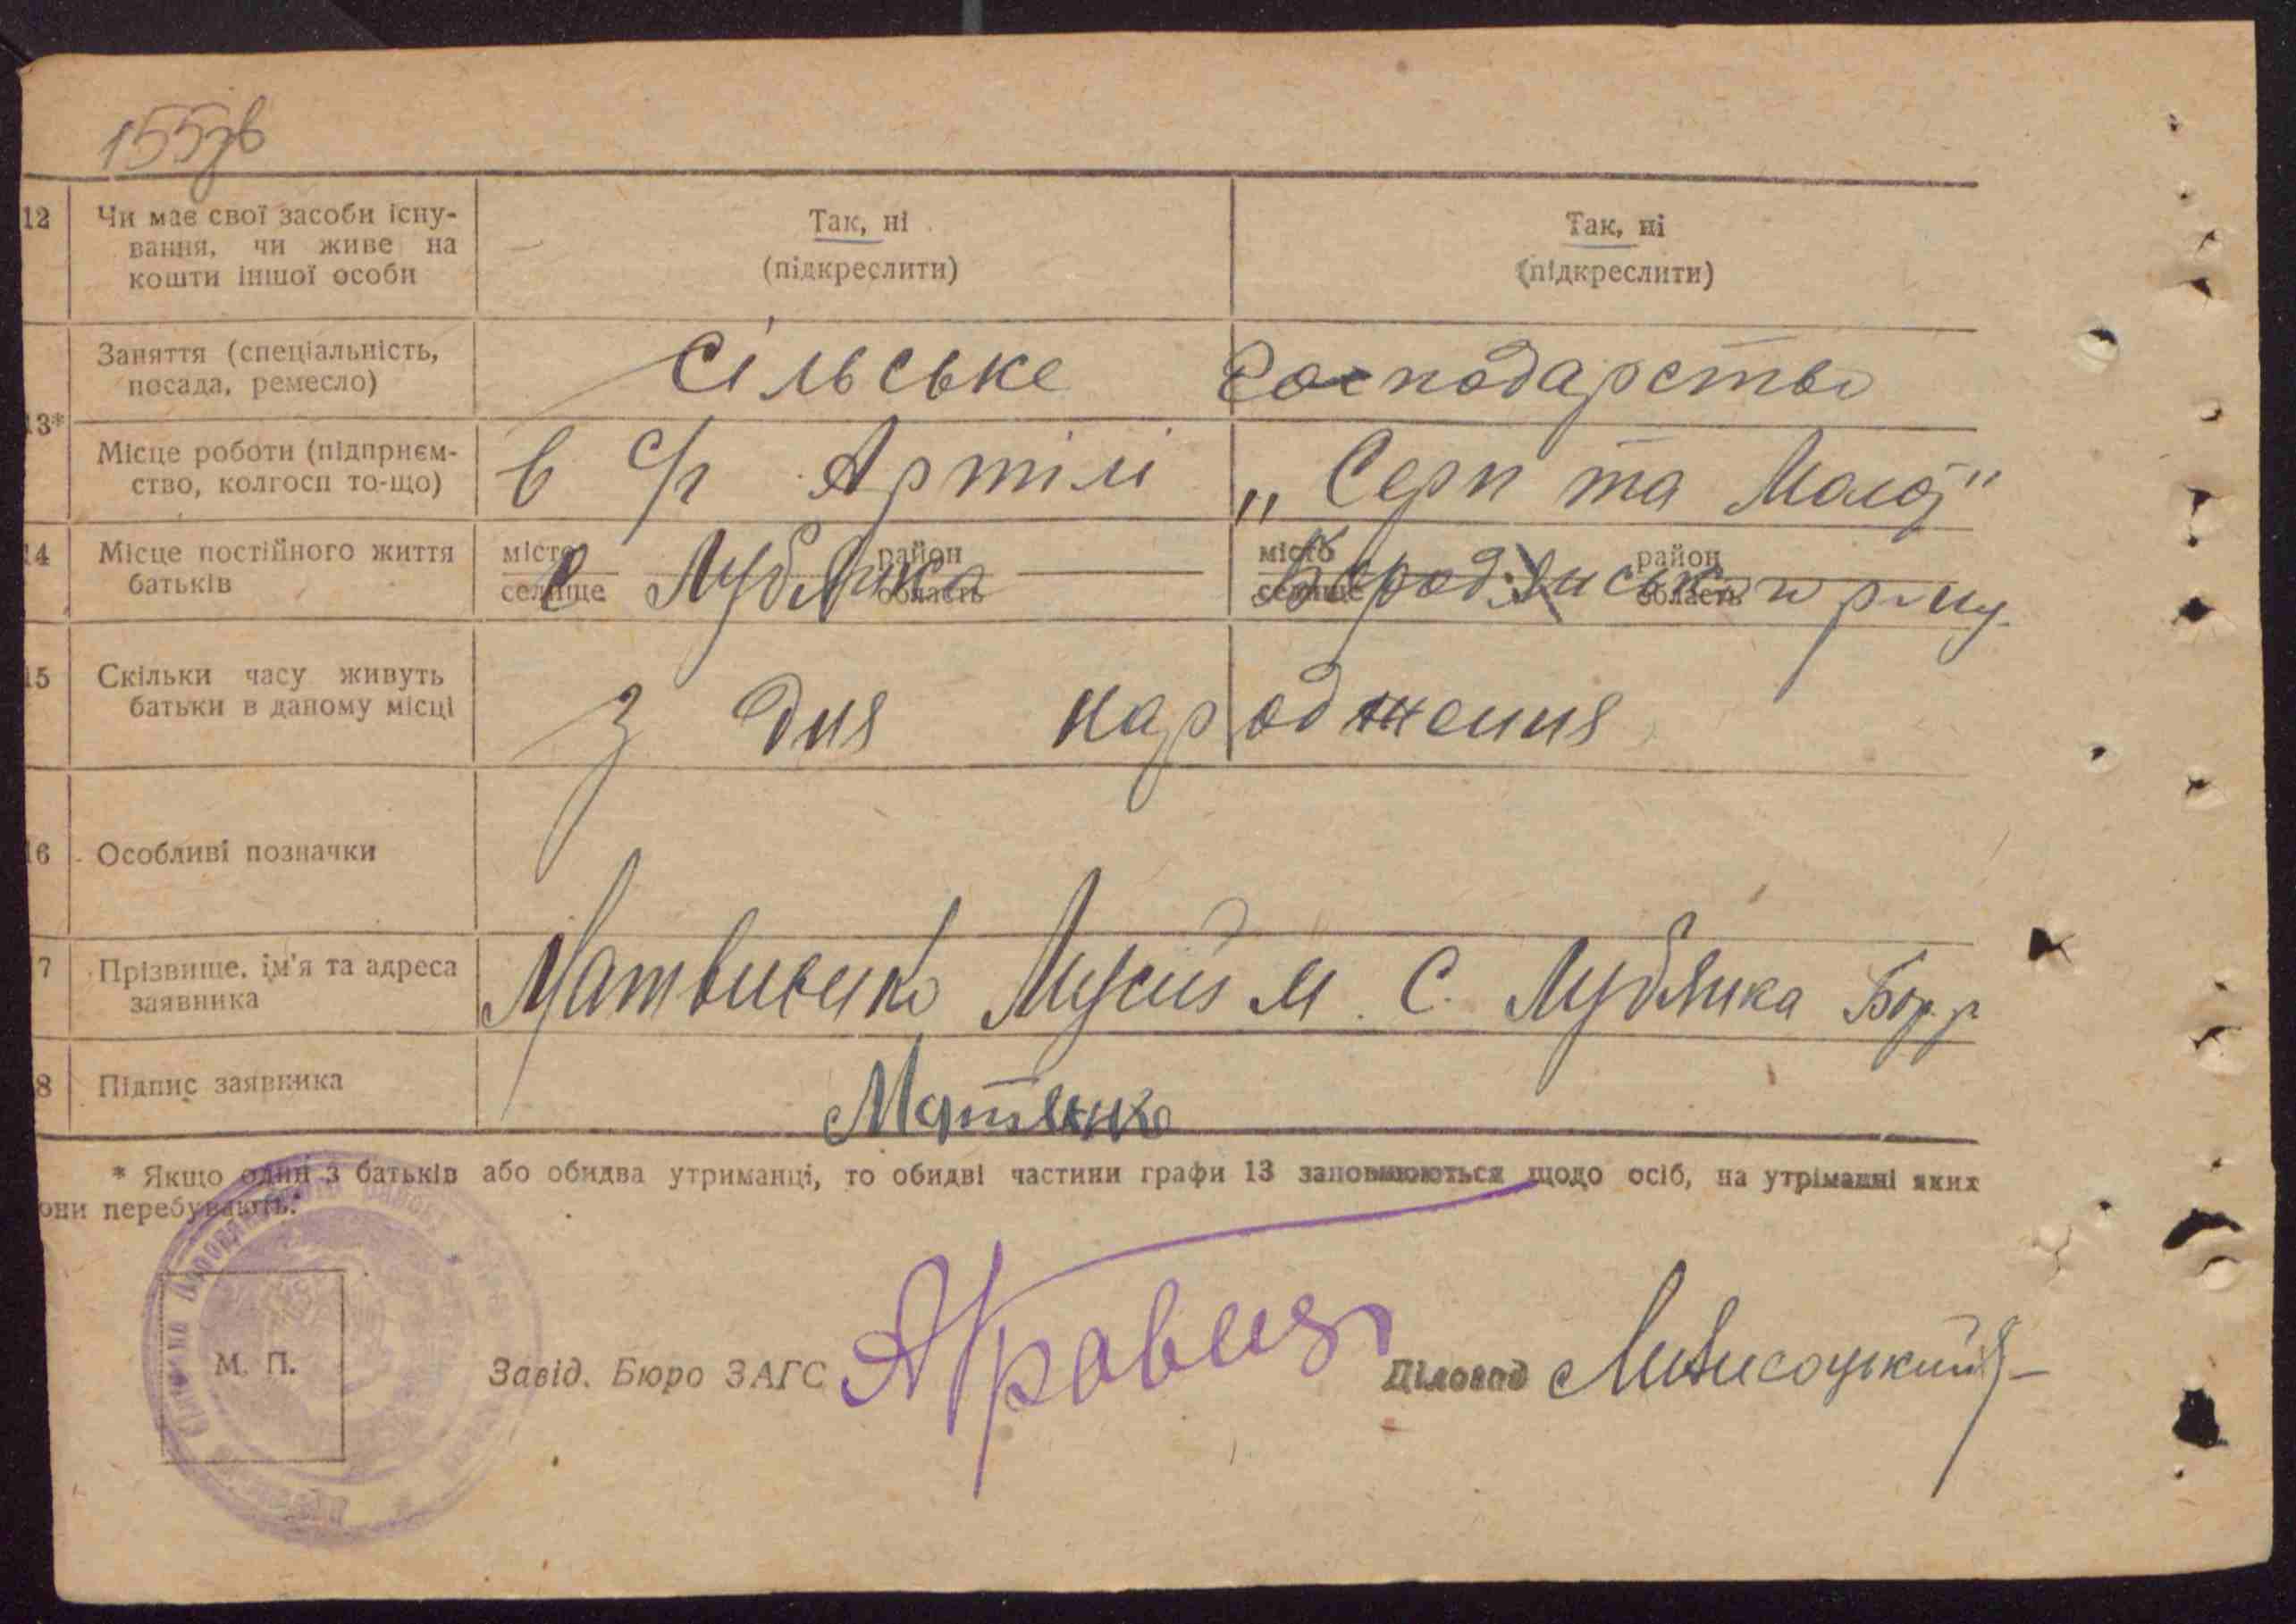 155зв
12 Чи має свої засоби існу-
вання, чи живе на
кошти іншої особи
Так, ні
(підкреслити)
Так, ні
(підкреслити)
13*
Заняття (спеціальність,
посада, ремесло)
Сільське господарство
Місце роботи (підприєм-
ство, колгосп то-що)
в с/г Артілі „Серп та Молот"
14 Місце постійного життя
батьків
місто
селище
район
область
с Лубянка
місто
селище
район
область
Бородянського р-ну
15 Скільки часу живуть
батьки в даному місці
З дня народження
16 Особливі позначки
7 Прізвище, ім'я та адреса
заявника
Матвиенко Мусий М. С. Лубянка Бор. р
8 Підпис заявника
* Якщо один з батьків або обидва утриманці, то обидві частини графи 13 заповнюються щодо осіб, на утріманні яких
они перебувають.
М. П.
Завід. Бюро ЗАГС
Діловод